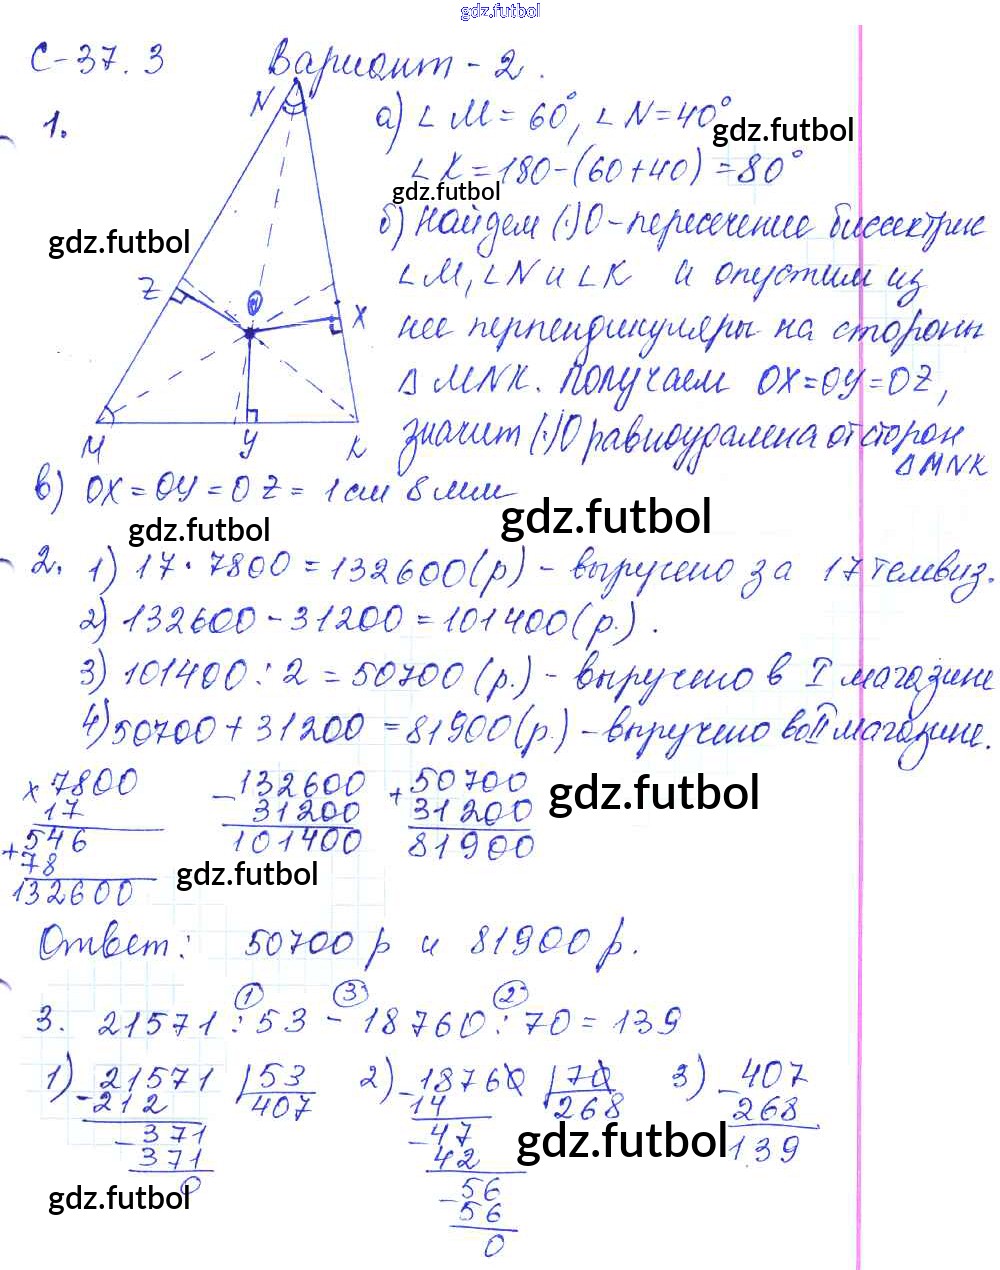 gdz.futbol
С-37.3 Вариант - 2.
1.
N
Z
O
X
M
Y
K
а) ∠M = 60°, ∠N = 40°
gdz.futbol
∠K = 180-(60+40) = 80°
gdz.futbol
gdz.futbol
б) Найдем (·)O - пересечение биссектрис
∠M, ∠N и ∠K и опустим из
нее перпендикуляры на стороны
△MNK. Получаем OX=OY=OZ,
значит (·)O равноудалена от сторон
△MNK
в) OX = OY = OZ = 1 см 8 мм
gdz.futbol
gdz.futbol
2. 1) 17 · 7800 = 132600 (р) - выручено за 17 телевиз.
2) 132600 - 31200 = 101400 (р.).
3) 101400 : 2 = 50700 (р.) - выручено в I магазине
4) 50700 + 31200 = 81900 (р.) - выручено во II магазине.
× 7800 - 132600 + 50700
17 31200 31200
+ 546 101400 81900
78
132600
gdz.futbol
gdz.futbol
Ответ: 50700 р и 81900 р.
1 3 2
3. 21571 : 53 - 18760 : 70 = 139
1) - 21571 | 53 2) - 18760 | 70 3) - 407
212 407 14 268 268
- 371 - 47 139
371 42
0 - 56
56
0
gdz.futbol
gdz.futbol